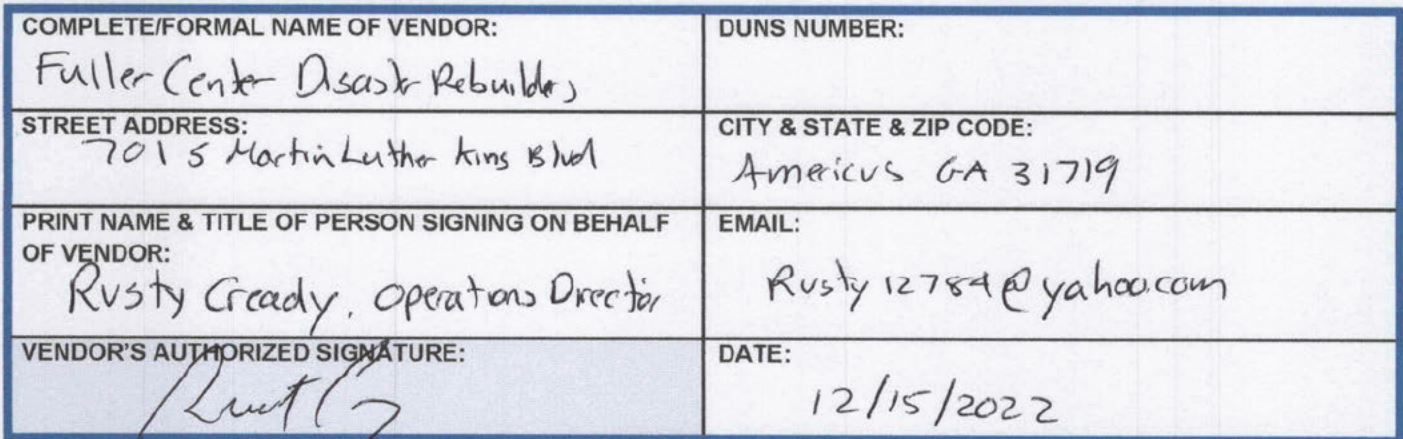 COMPLETE/FORMAL NAME OF VENDOR:
Fuller Center Disaster Rebuilders
DUNS NUMBER:
STREET ADDRESS:
701 S Martin Luther Kings Blvd
CITY & STATE & ZIP CODE:
Americus GA 31719
PRINT NAME & TITLE OF PERSON SIGNING ON BEHALF
OF VENDOR:
Rusty Cready, Operations Director
EMAIL:
Rusty12784@yahoo.com
VENDOR'S AUTHORIZED SIGNATURE:
DATE:
12/15/2022